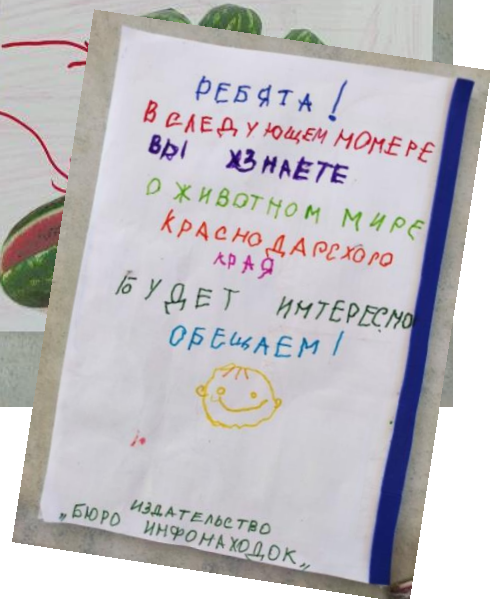 РЕБЯТА!
В СЛЕДУЮЩЕМ МОМЕРЕ
ВЫ УЗНАЕТЕ
О ЖИВОТНОМ МИРЕ
КРАСНОДАРСКОГО
КРАЯ
БУДЕТ ИМТЕРЕСМО
ОБЕЩАЕМ!
ИЗДАТЕЛЬСТВО
„БЮРО ИНФОНАХОДОК„